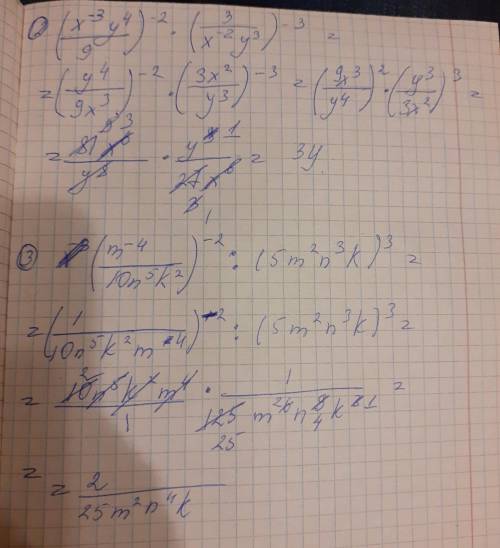 ② (x⁻³y⁴/9)⁻² · (3/(x⁻²y³))⁻³ =
= (y⁴/(9x³))⁻² · (3x²/y³)⁻³ = (9x³/y⁴)² · (y³/(3x²))³ =
= 81x⁶/y⁸ · y⁹/(27x⁶) = 3y
③ (m⁻⁴/(10n⁵k²))⁻² : (5m²n³k)³ =
= (1/(10n⁵k²m⁴))⁻² : (5m²n³k)³ =
= 10n⁵k²m⁴/1 · 1/(125m⁶n⁹k³) =
= 2/(25m²n⁴k)